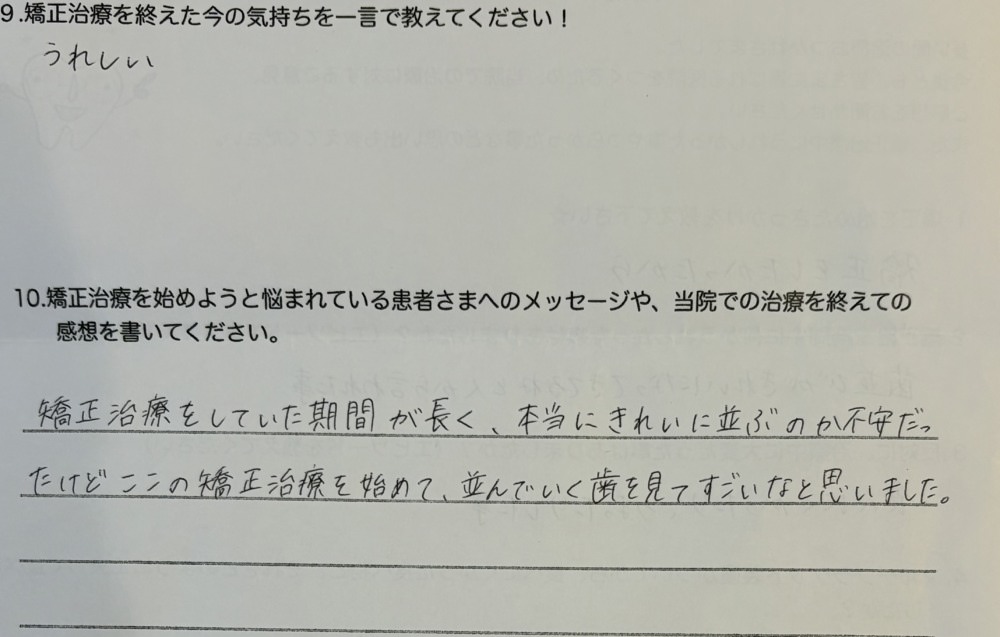 9.矯正治療を終えた今の気持ちを一言で教えてください！
うれしい
10.矯正治療を始めようと悩まれている患者さまへのメッセージや、当院での治療を終えての
感想を書いてください。
矯正治療をしていた期間が長く、本当にきれいに並ぶのか不安だっ
たけどここの矯正治療を始めて、並んでいく歯を見てすごいなと思いました。